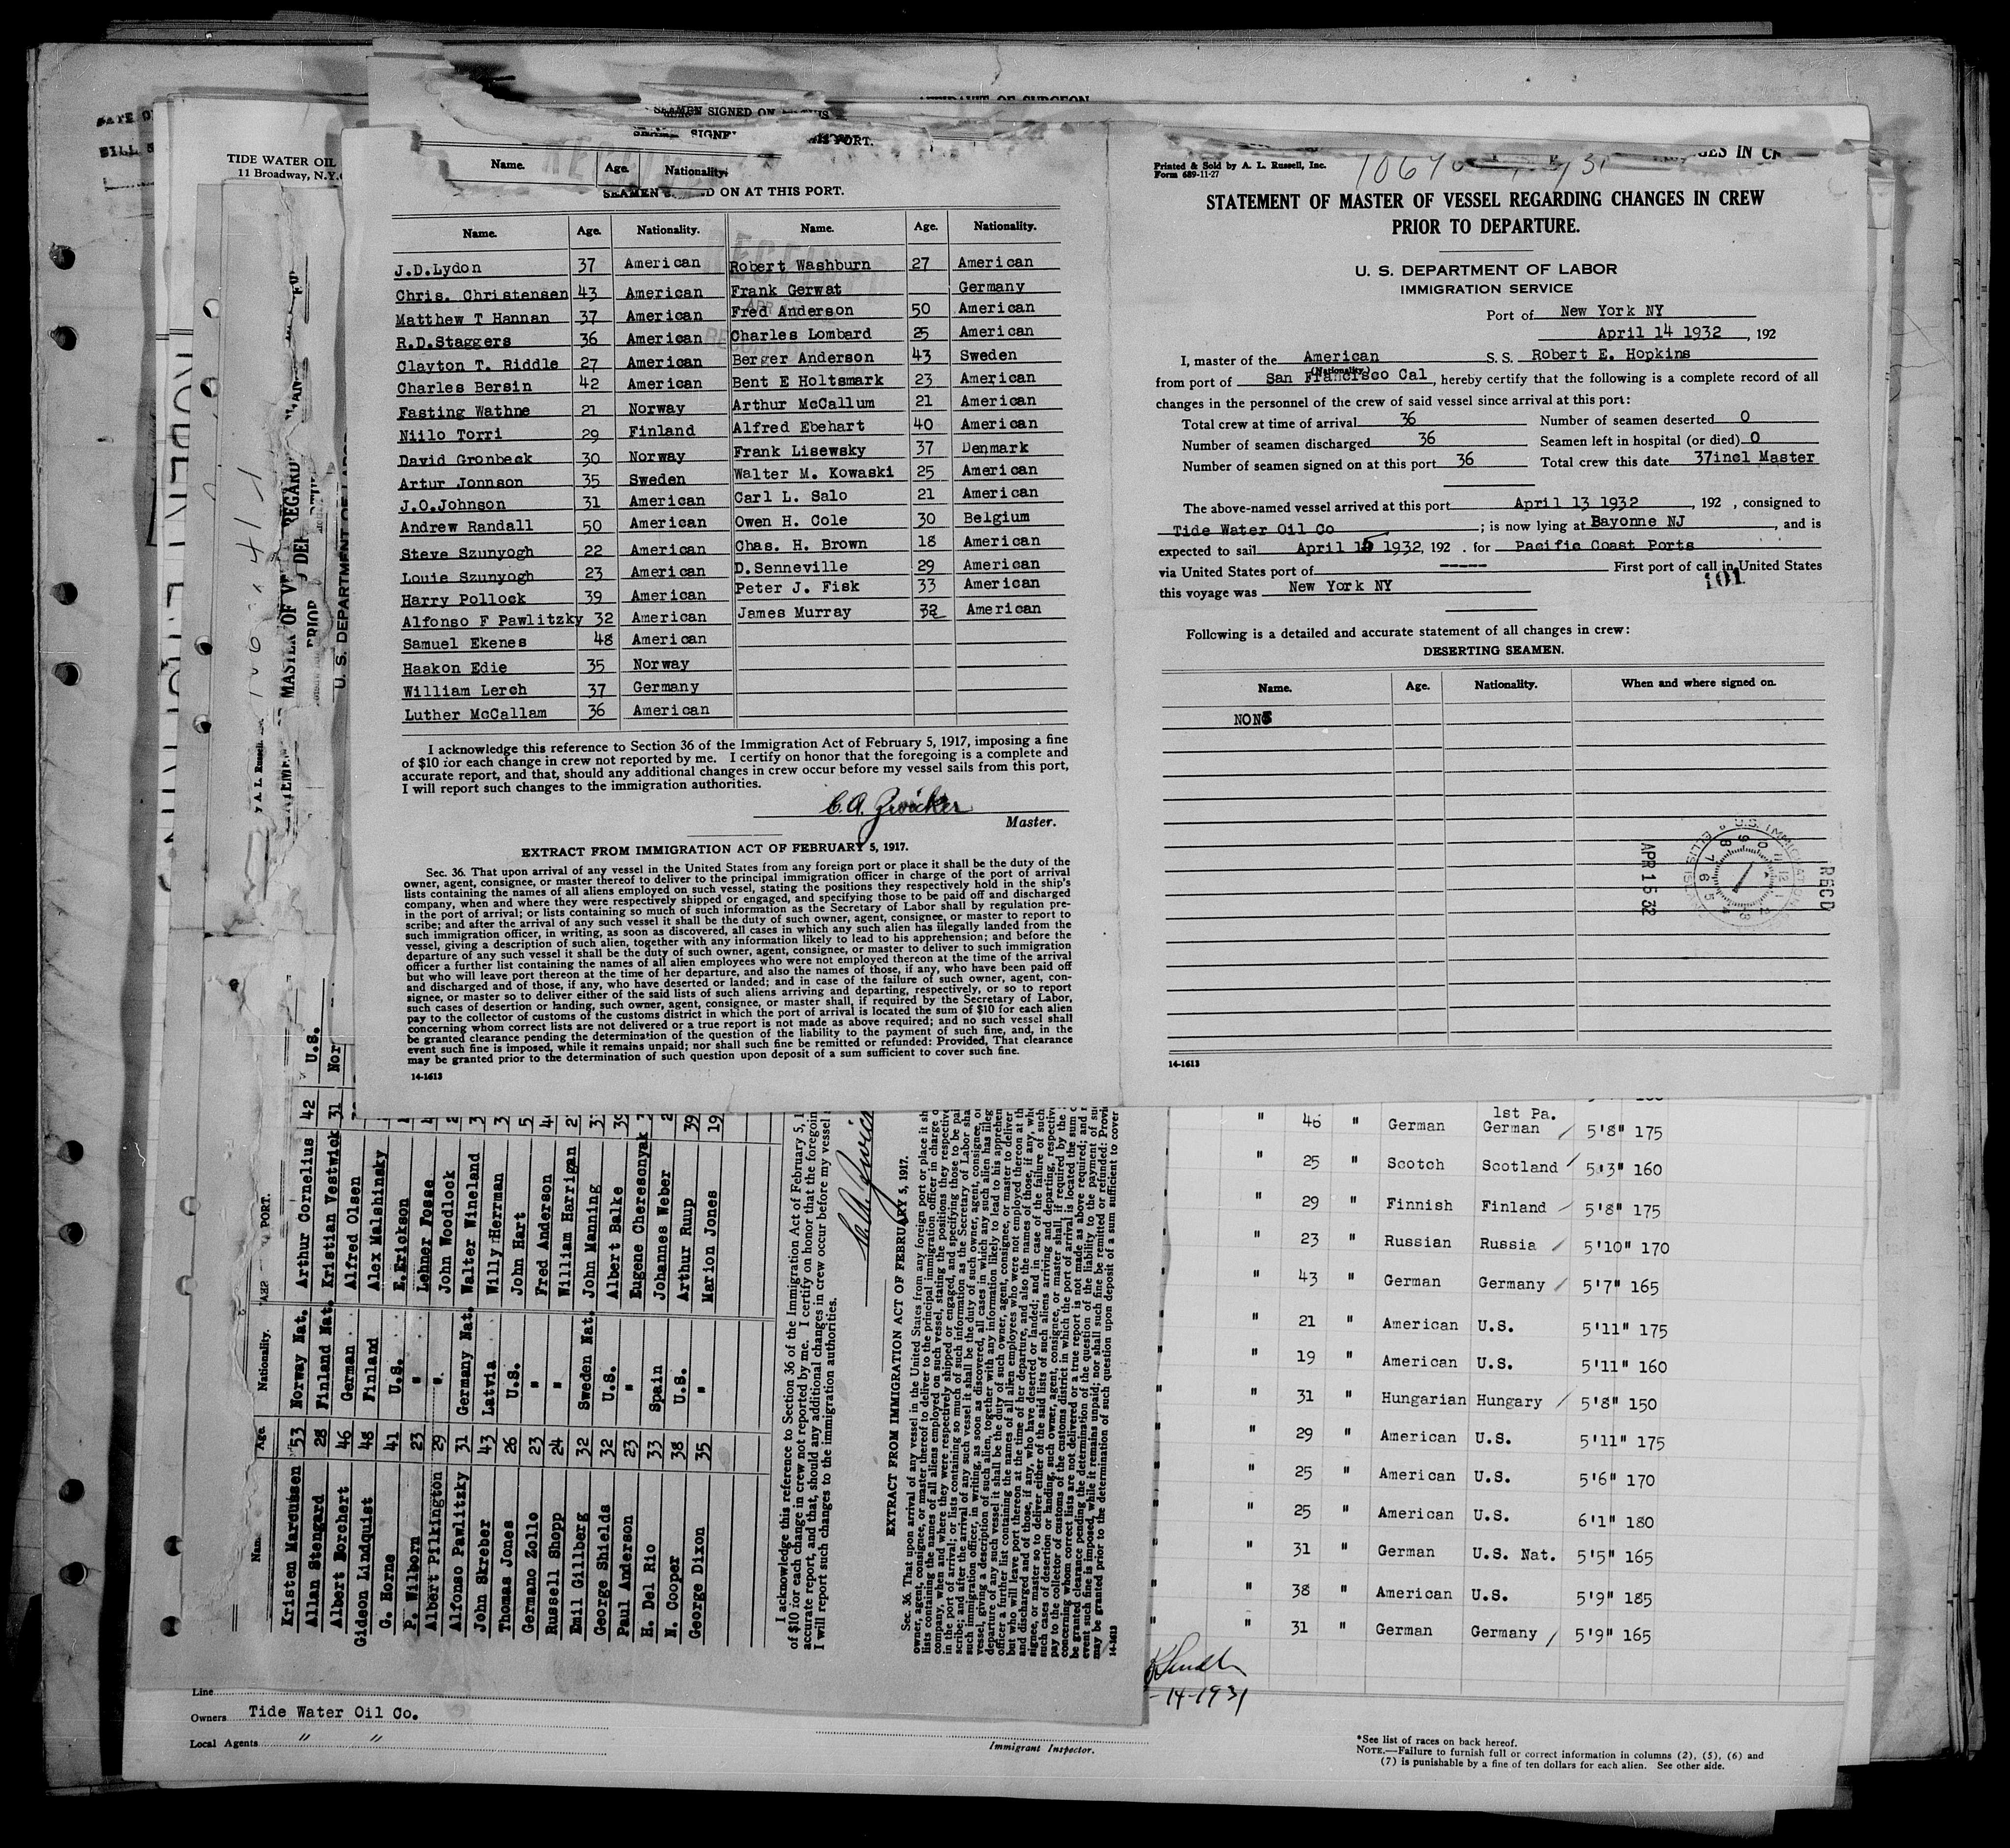 TIDE WATER OIL
11 Broadway, N.Y.
SEAMEN SIGNED ON
PORT.
Name. Age. Nationality.
SEAMEN ON AT THIS PORT.
Name. Age. Nationality. Name. Age. Nationality.
J.D.Lydon 37 American Robert Washburn 27 American
Chris. Christensen 43 American Frank Gerwat Germany
Matthew T Hannan 37 American Fred Anderson 50 American
R.D.Staggers 36 American Charles Lombard 25 American
Clayton T. Riddle 27 American Berger Anderson 43 Sweden
Charles Bersin 42 American Bent E Holtsmark 23 American
Fasting Wathne 21 Norway Arthur McCallum 21 American
Niilo Torri 29 Finland Alfred Ebehart 40 American
David Gronbeck 30 Norway Frank Lisewsky 37 Denmark
Artur Jonnson 35 Sweden Walter M. Kowaski 25 American
J.O.Johnson 31 American Carl L. Salo 21 American
Andrew Randall 50 American Owen H. Cole 30 Belgium
Steve Szunyogh 22 American Chas. H. Brown 18 American
Louie Szunyogh 23 American D.Senneville 29 American
Harry Pollock 39 American Peter J. Fisk 33 American
Alfonso F Pawlitzky 32 American James Murray 32 American
Samuel Ekenes 48 American
Haakon Edie 35 Norway
William Lerch 37 Germany
Luther McCallam 36 American
I acknowledge this reference to Section 36 of the Immigration Act of February 5, 1917, imposing a fine
of $10 for each change in crew not reported by me. I certify on honor that the foregoing is a complete and
accurate report, and that, should any additional changes in crew occur before my vessel sails from this port,
I will report such changes to the immigration authorities.
C.A. Zwicker
Master.
EXTRACT FROM IMMIGRATION ACT OF FEBRUARY 5, 1917.
Sec. 36. That upon arrival of any vessel in the United States from any foreign port or place it shall be the duty of the
owner, agent, consignee, or master thereof to deliver to the principal immigration officer in charge of the port of arrival
lists containing the names of all aliens employed on such vessel, stating the positions they respectively hold in the ship's
company, when and where they were respectively shipped or engaged, and specifying those to be paid off and discharged
in the port of arrival; or lists containing so much of such information as the Secretary of Labor shall by regulation pre-
scribe; and after the arrival of any such vessel it shall be the duty of such owner, agent, consignee, or master to report to
such immigration officer, in writing, as soon as discovered, all cases in which any such alien has illegally landed from the
vessel, giving a description of such alien, together with any information likely to lead to his apprehension; and before the
departure of any such vessel it shall be the duty of such owner, agent, consignee, or master to deliver to such immigration
officer a further list containing the names of all alien employees who were not employed thereon at the time of the arrival
but who will leave port thereon at the time of her departure, and also the names of those, if any, who have been paid off
and discharged and of those, if any, who have deserted or landed; and in case of the failure of such owner, agent, con-
signee, or master so to deliver either of the said lists of such aliens arriving and departing, respectively, or so to report
such cases of desertion or landing, such owner, agent, consignee, or master shall, if required by the Secretary of Labor,
pay to the collector of customs of the customs district in which the port of arrival is located the sum of $10 for each alien
concerning whom correct lists are not delivered or a true report is not made as above required; and no such vessel shall
be granted clearance pending the determination of the question of the liability to the payment of such fine, and, in the
event such fine is imposed, while it remains unpaid; nor shall such fine be remitted or refunded: Provided, That clearance
may be granted prior to the determination of such question upon deposit of a sum sufficient to cover such fine.
14-1613
Printed & Sold by A. L. Russell, Inc.
Form 689-11-27
STATEMENT OF MASTER OF VESSEL REGARDING CHANGES IN CREW
PRIOR TO DEPARTURE.
U. S. DEPARTMENT OF LABOR
IMMIGRATION SERVICE
Port of New York NY
April 14 1932, 192
I, master of the American S. S. Robert E. Hopkins
(Nationality)
from port of San Francisco Cal, hereby certify that the following is a complete record of all
changes in the personnel of the crew of said vessel since arrival at this port:
Total crew at time of arrival 36 Number of seamen deserted 0
Number of seamen discharged 36 Seamen left in hospital (or died) 0
Number of seamen signed on at this port 36 Total crew this date 37incl Master
The above-named vessel arrived at this port April 13 1932, 192 , consigned to
Tide Water Oil Co ; is now lying at Bayonne NJ, and is
expected to sail April 15 1932, 192 . for Pacific Coast Ports
via United States port of ----- First port of call in United States
this voyage was New York NY 101
Following is a detailed and accurate statement of all changes in crew:
DESERTING SEAMEN.
Name. Age. Nationality. When and where signed on.
NONE
APR 15 32
REC'D
14-1613
Name Age. Nationality.
Kristen Marcussen 53 Norway Nat. Arthur Cornelius 42 U.S.
Allan Stengard 28 Finland Nat. Kristian Vestwick 31 Nor
Albert Borchert 46 German Alfred Olsen
Gideon Lindquist 48 Finland Alex Malshinsky
C. Horne 41 U.S. E.Erickson
P. Wilborn 23 " Lehner Fosse
Albert Pilkington 29 " John Woodlock
Alfonso Pawlitzky 31 Germany Nat. Walter Wineland
John Skreber 43 Latvia Willy Herrman
Thomas Jones 26 U.S. John Hart
Germano Zollo 23 " Fred Anderson
Russell Shopp 24 " William Harrigan
Emil Gillberg 32 Sweden Nat. John Manning
George Shields 32 U.S. Albert Balke
Paul Anderson 23 " Eugene Cheresonyak
H. Del Rio 33 Spain Johannes Weber
N. Cooper 38 U.S. Arthur Ruup 39
George Dixon 35 " Marion Jones 19
I acknowledge this reference to Section 36 of the Immigration Act of February 5, 1
of $10 for each change in crew not reported by me. I certify on honor that the foregoin
accurate report, and that, should any additional changes in crew occur before my vessel
I will report such changes to the immigration authorities.
EXTRACT FROM IMMIGRATION ACT OF FEBRUARY 5, 1917.
14-1613
" 46 " German 1st Pa. German 5'8" 175
" 25 " Scotch Scotland 5'3" 160
" 29 " Finnish Finland 5'8" 175
" 23 " Russian Russia 5'10" 170
" 43 " German Germany 5'7" 165
" 21 " American U.S. 5'11" 175
" 19 " American U.S. 5'11" 160
" 31 " Hungarian Hungary 5'8" 150
" 29 " American U.S. 5'11" 175
" 25 " American U.S. 5'6" 170
" 25 " American U.S. 6'1" 180
" 31 " German U.S. Nat. 5'5" 165
" 38 " American U.S. 5'9" 185
" 31 " German Germany 5'9" 165
-14-1931
Line
Owners Tide Water Oil Co.
Local Agents " "
Immigrant Inspector.
*See list of races on back hereof.
NOTE.—Failure to furnish full or correct information in columns (2), (5), (6) and
(7) is punishable by a fine of ten dollars for each alien. See other side.